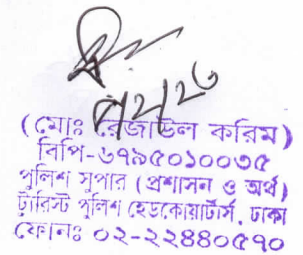 (মোঃ রেজাউল করিম)
বিপি-৬৭৯৫০১০০৩৫
পুলিশ সুপার (প্রশাসন ও অর্থ)
ট্যুরিস্ট পুলিশ হেডকোয়ার্টার্স, ঢাকা
ফোনঃ ০২-২২৪৪০৫৭০